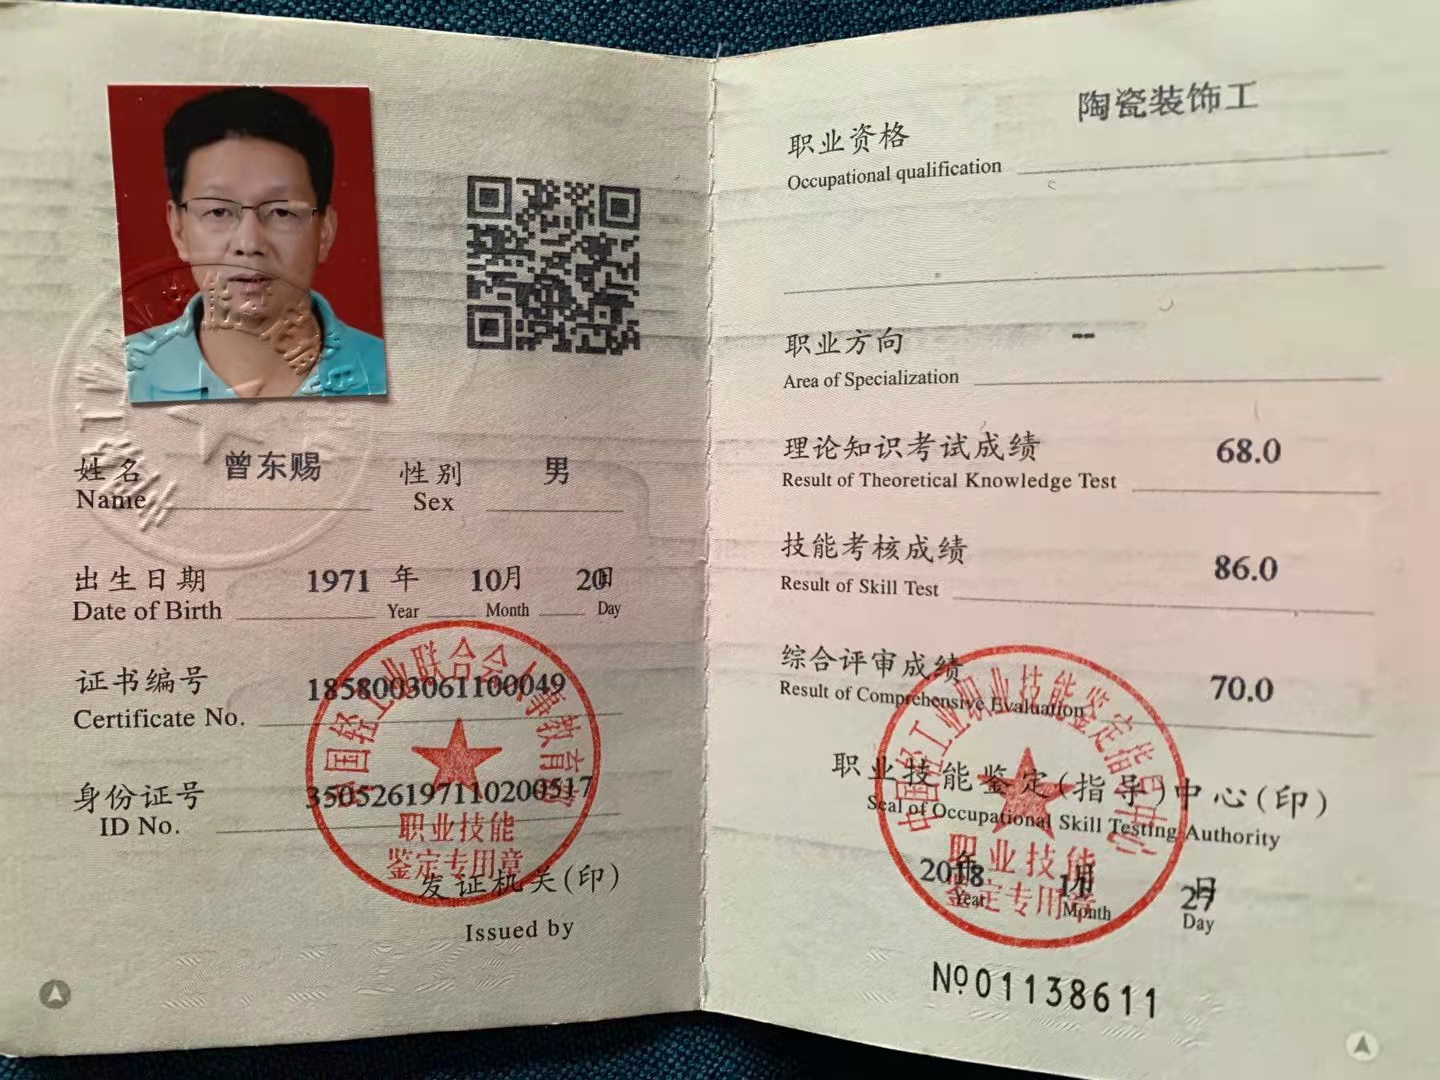 姓名 曾东赐 性别 男
Name Sex
出生日期 1971 年 10 月 20 日
Date of Birth Year Month Day
证书编号 1858003061100049
Certificate No.
身份证号 350526197110200517
ID No.
国轻工业联合会人事教育
职业技能
鉴定专用章
发证机关(印)
Issued by
陶瓷装饰工
职业资格
Occupational qualification
职业方向 --
Area of Specialization
理论知识考试成绩 68.0
Result of Theoretical Knowledge Test
技能考核成绩 86.0
Result of Skill Test
综合评审成绩 70.0
Result of Comprehensive Evaluation
职业技能鉴定(指导)中心(印)
Seal of Occupational Skill Testing Authority
中国轻工业职业技能鉴定指导中心
职业技能
鉴定专用章
2018 年 11 月 27 日
Year Month Day
No 01138611